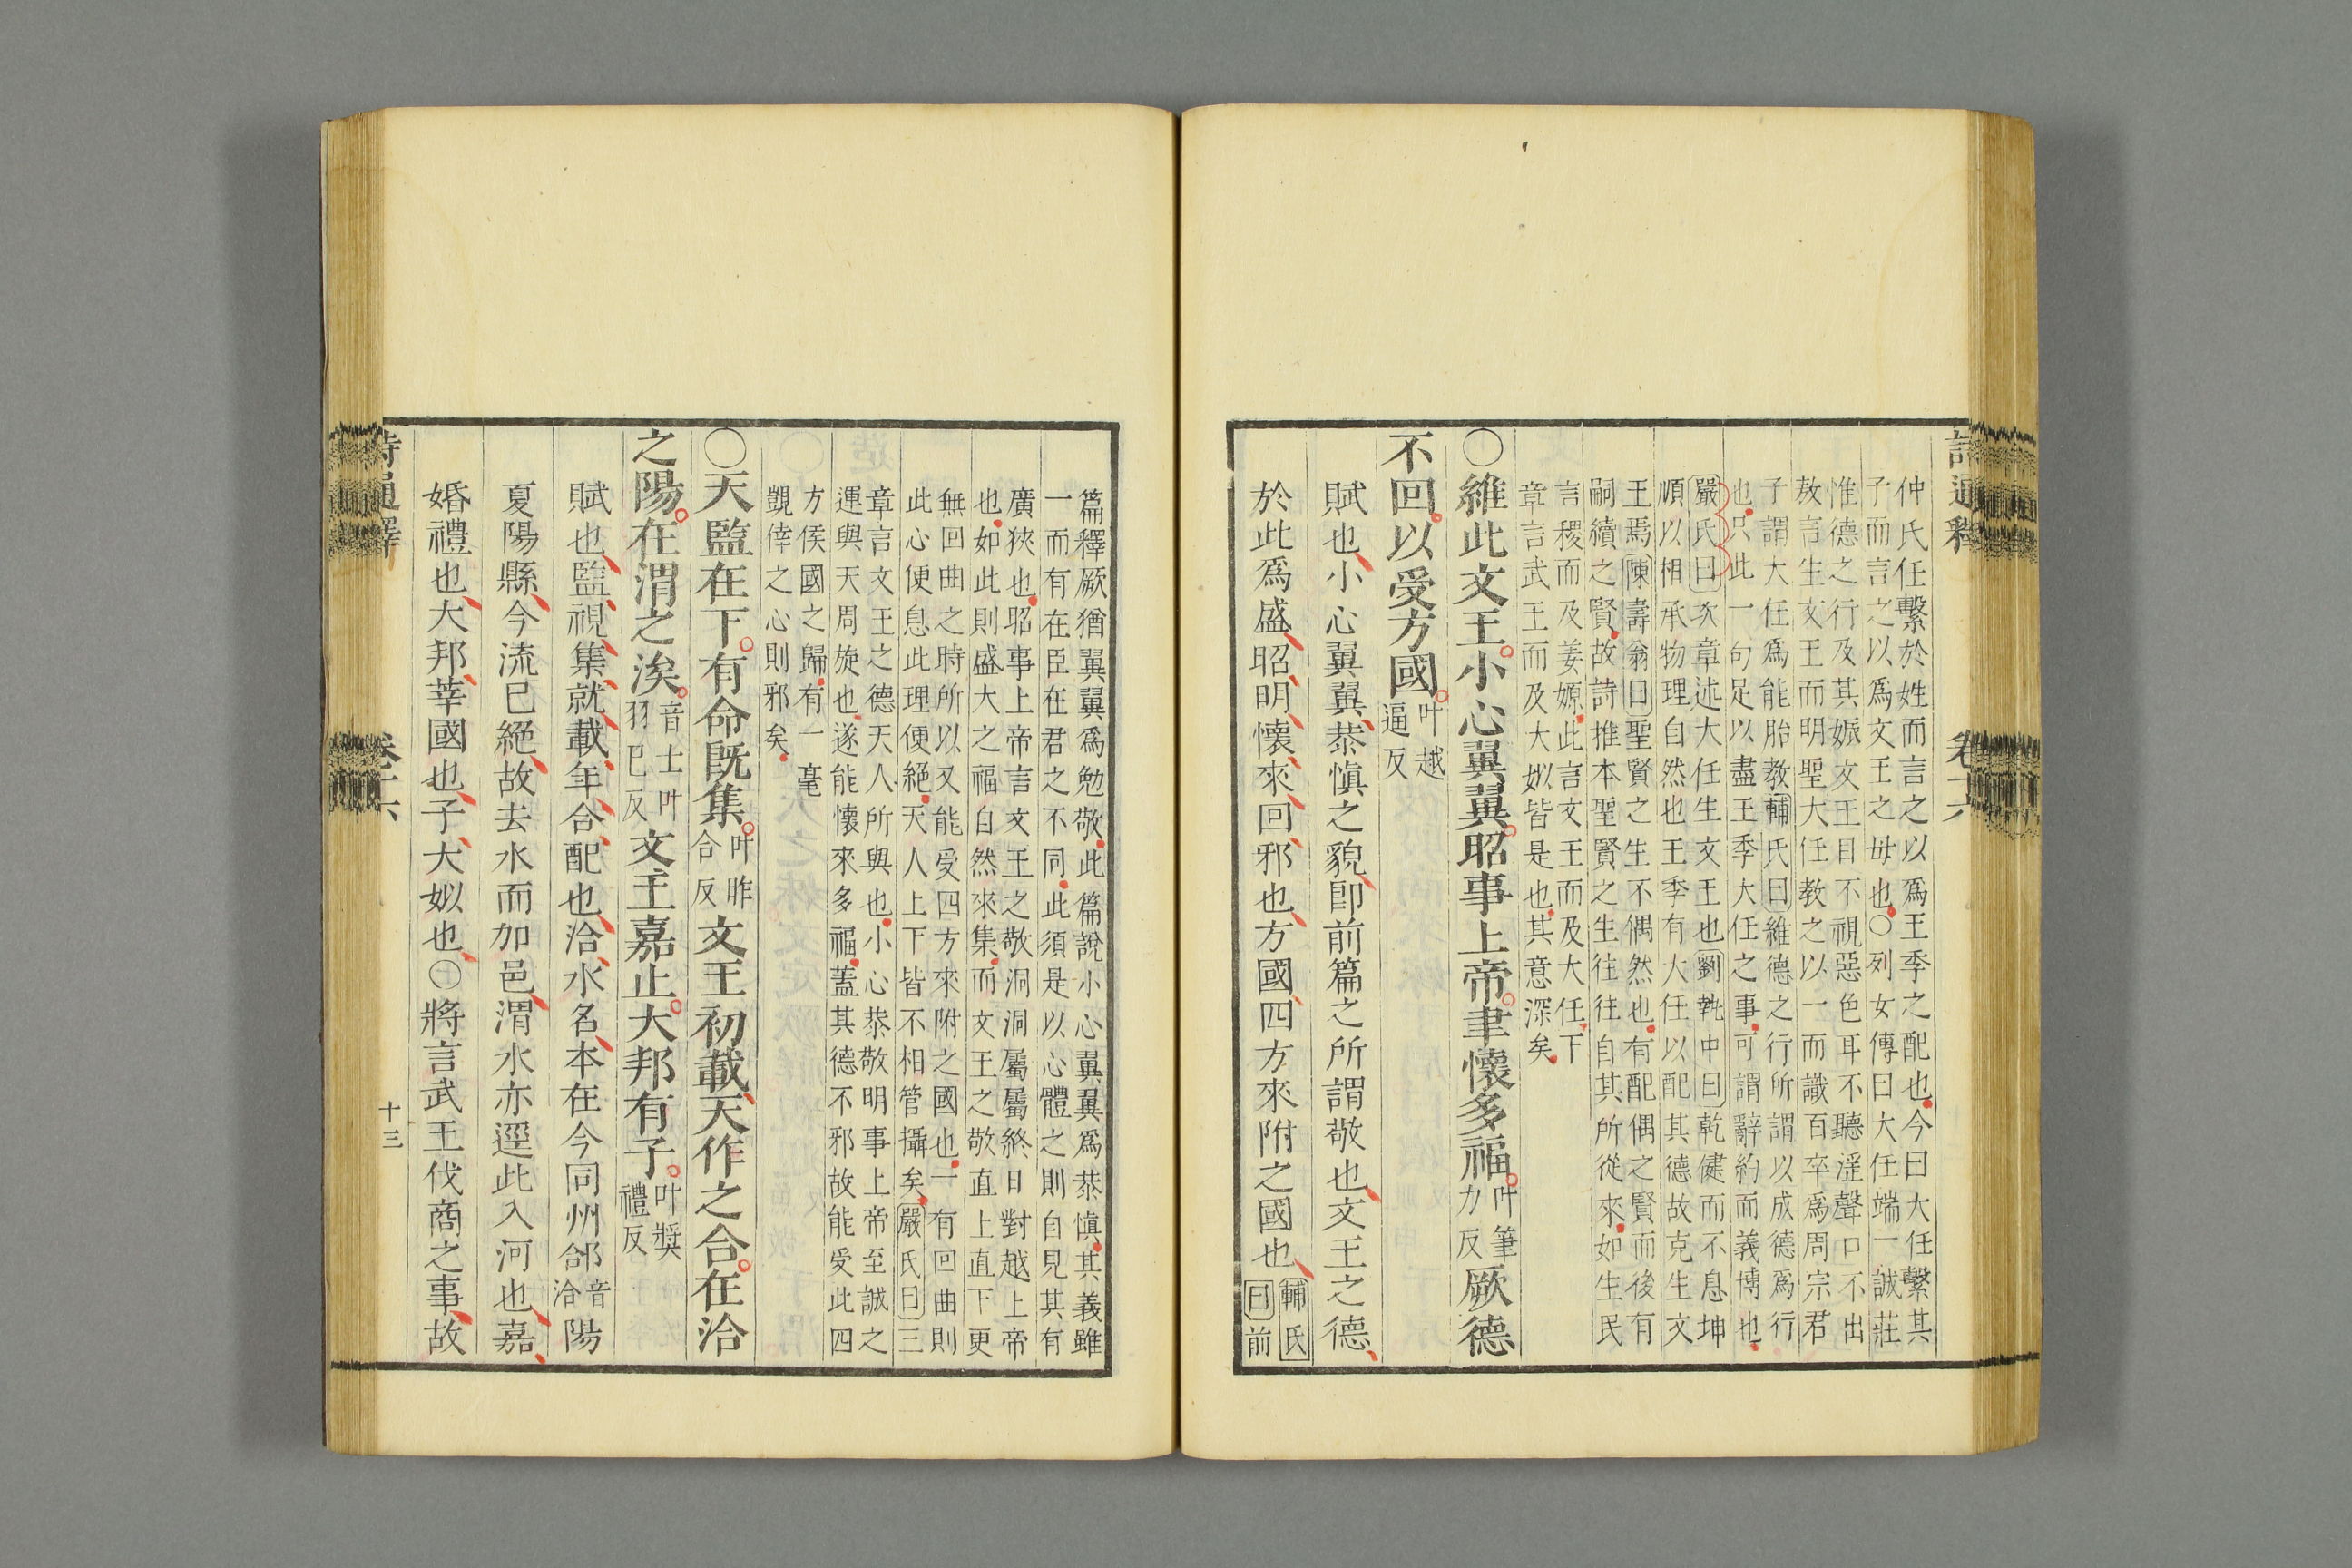 詩通釋 卷十六
仲氏任繫於姓而言之以爲王季之配也今曰大任繫其
子而言之以爲文王之母也○列女傳曰大任端一誠莊
惟德之行及其娠文王目不視惡色耳不聽淫聲口不出
敖言生文王而明聖大任教之以一而識百卒爲周宗君
子謂大任爲能胎教輔氏曰維德之行所謂以成德爲行
也只此一句足以盡王季大任之事可謂辭約而義博也
嚴氏曰次章述大任生文王也劉執中曰乾健而不息坤
順以相承物理自然也王季有大任以配其德故克生文
王焉陳壽翁曰聖賢之生不偶然也有配偶之賢而後有
嗣續之賢故詩推本聖賢之生往往自其所從來如生民
言稷而及姜嫄此言文王而及大任下
章言武王而及大姒皆是也其意深矣
○維此文王小心翼翼昭事上帝聿懷多福叶筆力反厥德
不回以受方國叶越逼反
賦也小心翼翼恭愼之貌卽前篇之所謂敬也文王之德
於此爲盛昭明懷來回邪也方國四方來附之國也輔氏曰前
篇釋厥猶翼翼爲勉敬此篇說小心翼翼爲恭愼其義雖
一而有在臣在君之不同此須是以心體之則自見其有
廣狹也昭事上帝言文王之敬洞洞屬屬終日對越上帝
也如此則盛大之福自然來集而文王之敬直上直下更
無回曲之時所以又能受四方來附之國也一有回曲則
此心便息此理便絕天人上下皆不相管攝矣嚴氏曰三
章言文王之德天人所與也小心恭敬明事上帝至誠之
運與天周旋也遂能懷來多福蓋其德不邪故能受此四
方侯國之歸有一毫
覬倖之心則邪矣
○天監在下有命旣集叶昨合反文王初載天作之合在洽
之陽在渭之涘音士叶羽已反文王嘉止大邦有子叶獎禮反
賦也監視集就載年合配也洽水名本在今同州郃音洽陽
夏陽縣今流已絕故去水而加邑渭水亦逕此入河也嘉
婚禮也大邦莘國也子大姒也○將言武王伐商之事故
詩通釋 卷十六 十三